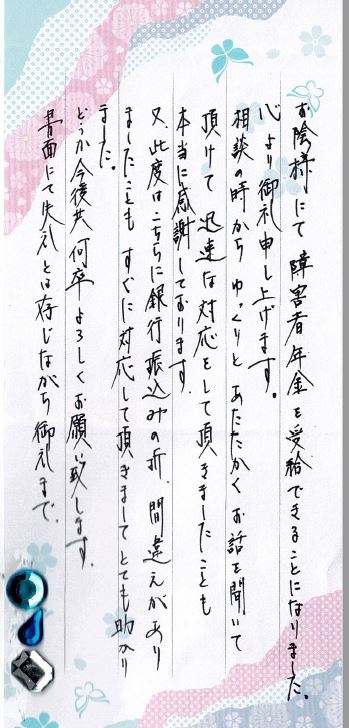 お陰様にて障害者年金を受給できることになりました。
心より御礼申し上げます。
相談の時からゆっくりとあたたかくお話を聞いて
頂けて迅速な対応をして頂きましたことも
本当に感謝しております。
又、此度はこちらに銀行振込みの折、間違えがあり
ましたことも すぐに対応して頂きましてとても助かり
ました。
どうか今後共何卒よろしくお願い致します。
書面にて失礼とは存じながら御礼まで。